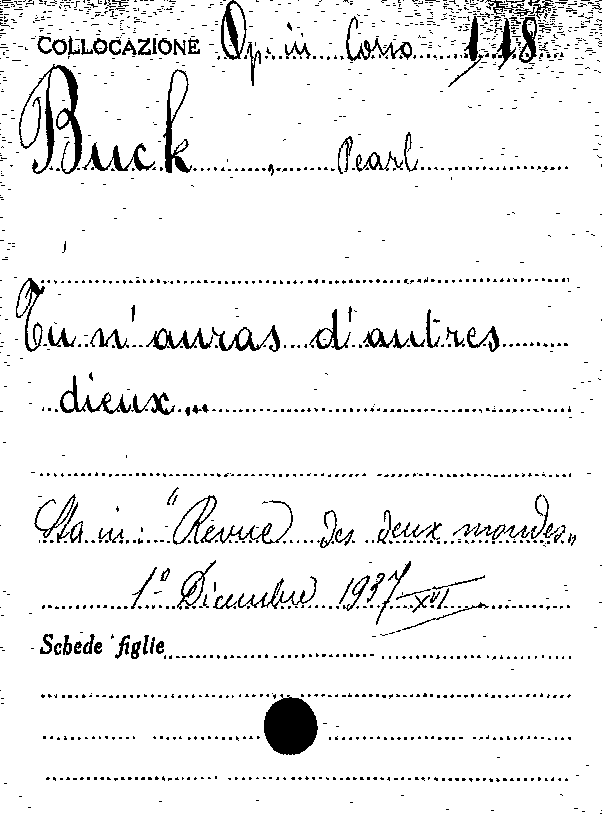 COLLOCAZIONE Op. in Corso 118
Buck, Pearl
Tu n'auras d'autres
dieux...
Sta in: "Revue des deux mondes"
1º Dicembre 1937-XVI
Schede figlie